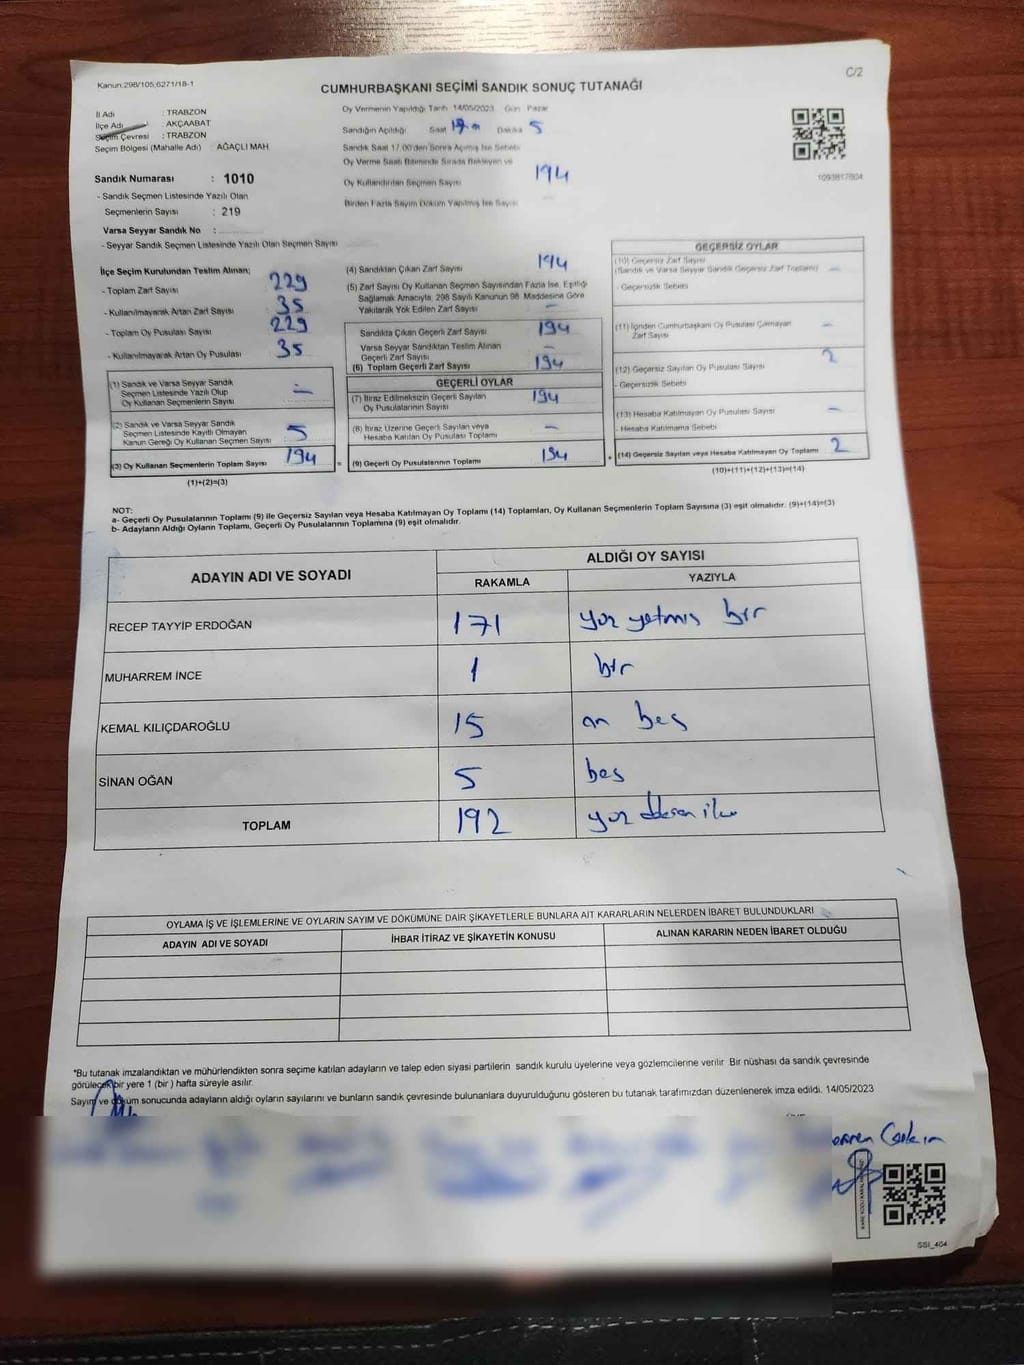 Kanun:298/105,6271/18-1
C/2
CUMHURBAŞKANI SEÇİMİ SANDIK SONUÇ TUTANAĞI
İl Adı : TRABZON
İlçe Adı : AKÇAABAT
Seçim Çevresi : TRABZON
Seçim Bölgesi (Mahalle Adı) : AĞAÇLI MAH
Sandık Numarası : 1010
- Sandık Seçmen Listesinde Yazılı Olan
Seçmenlerin Sayısı : 219
Varsa Seyyar Sandık No :
- Seyyar Sandık Seçmen Listesinde Yazılı Olan Seçmen Sayısı
Oy Vermenin Yapıldığı Tarih 14/05/2023 Gün Pazar
Sandığın Açıldığı Saat Dakika 5
Sandık Saat 17.00'den Sonra Açılmış İse Sebebi
Oy Verme Saati Bitiminde Sırada Bekleyen ve
Oy Kullandırılan Seçmen Sayısı 194
Birden Fazla Sayım Döküm Yapılmış İse Sayısı
1093817604
İlçe Seçim Kurulundan Teslim Alınan;
- Toplam Zarf Sayısı 229
- Kullanılmayarak Artan Zarf Sayısı : 35
- Toplam Oy Pusulası Sayısı 229
- Kullanılmayarak Artan Oy Pusulası 35
(1) Sandık ve Varsa Seyyar Sandık
Seçmen Listesinde Yazılı Olup
Oy Kullanan Seçmenlerin Sayısı : –
(2) Sandık ve Varsa Seyyar Sandık
Seçmen Listesinde Kayıtlı Olmayan
Kanun Gereği Oy Kullanan Seçmen Sayısı : 5
(3) Oy Kullanan Seçmenlerin Toplam Sayısı 194
(1)+(2)=(3)
(4) Sandıktan Çıkan Zarf Sayısı 194
(5) Zarf Sayısı Oy Kullanan Seçmen Sayısından Fazla İse, Eşitliği
Sağlamak Amacıyla; 298 Sayılı Kanunun 98. Maddesine Göre
Yakılarak Yok Edilen Zarf Sayısı –
Sandıkta Çıkan Geçerli Zarf Sayısı 194
Varsa Seyyar Sandıktan Teslim Alınan
Geçerli Zarf Sayısı –
(6) Toplam Geçerli Zarf Sayısı 194
GEÇERLİ OYLAR
(7) İtiraz Edilmeksizin Geçerli Sayılan
Oy Pusulalarının Sayısı 194
(8) İtiraz Üzerine Geçerli Sayılan veya
Hesaba Katılan Oy Pusulası Toplamı –
= (9) Geçerli Oy Pusulalarının Toplamı 194
GEÇERSİZ OYLAR
(10) Geçersiz Zarf Sayısı
(Sandık ve Varsa Seyyar Sandık Geçersiz Zarf Toplamı) –
- Geçersizlik Sebebi
(11) İçinden Cumhurbaşkanı Oy Pusulası Çıkmayan
Zarf Sayısı –
(12) Geçersiz Sayılan Oy Pusulası Sayısı 2
- Geçersizlik Sebebi
(13) Hesaba Katılmayan Oy Pusulası Sayısı –
- Hesaba Katılmama Sebebi
+ (14) Geçersiz Sayılan veya Hesaba Katılmayan Oy Toplamı 2
(10)+(11)+(12)+(13)=(14)
NOT:
a- Geçerli Oy Pusulalarının Toplamı (9) ile Geçersiz Sayılan veya Hesaba Katılmayan Oy Toplamı (14) Toplamları, Oy Kullanan Seçmenlerin Toplam Sayısına (3) eşit olmalıdır. (9)+(14)=(3)
b- Adayların Aldığı Oyların Toplamı, Geçerli Oy Pusulalarının Toplamına (9) eşit olmalıdır.
ADAYIN ADI VE SOYADI ALDIĞI OY SAYISI
RAKAMLA YAZIYLA
RECEP TAYYİP ERDOĞAN 171 yüz yetmiş bir
MUHARREM İNCE 1 bir
KEMAL KILIÇDAROĞLU 15 on beş
SİNAN OĞAN 5 beş
TOPLAM 192 yüz doksan iki
OYLAMA İŞ VE İŞLEMLERİNE VE OYLARIN SAYIM VE DÖKÜMÜNE DAİR ŞİKAYETLERLE BUNLARA AİT KARARLARIN NELERDEN İBARET BULUNDUKLARI
ADAYIN ADI VE SOYADI İHBAR İTİRAZ VE ŞİKAYETİN KONUSU ALINAN KARARIN NEDEN İBARET OLDUĞU
*Bu tutanak imzalandıktan ve mühürlendikten sonra seçime katılan adayların ve talep eden siyasi partilerin sandık kurulu üyelerine veya gözlemcilerine verilir Bir nüshası da sandık çevresinde
görülecek bir yere 1 (bir ) hafta süreyle asılır.
Sayım ve döküm sonucunda adayların aldığı oyların sayılarını ve bunların sandık çevresinde bulunanlara duyurulduğunu gösteren bu tutanak tarafımızdan düzenlenerek imza edildi. 14/05/2023
SSİ_464